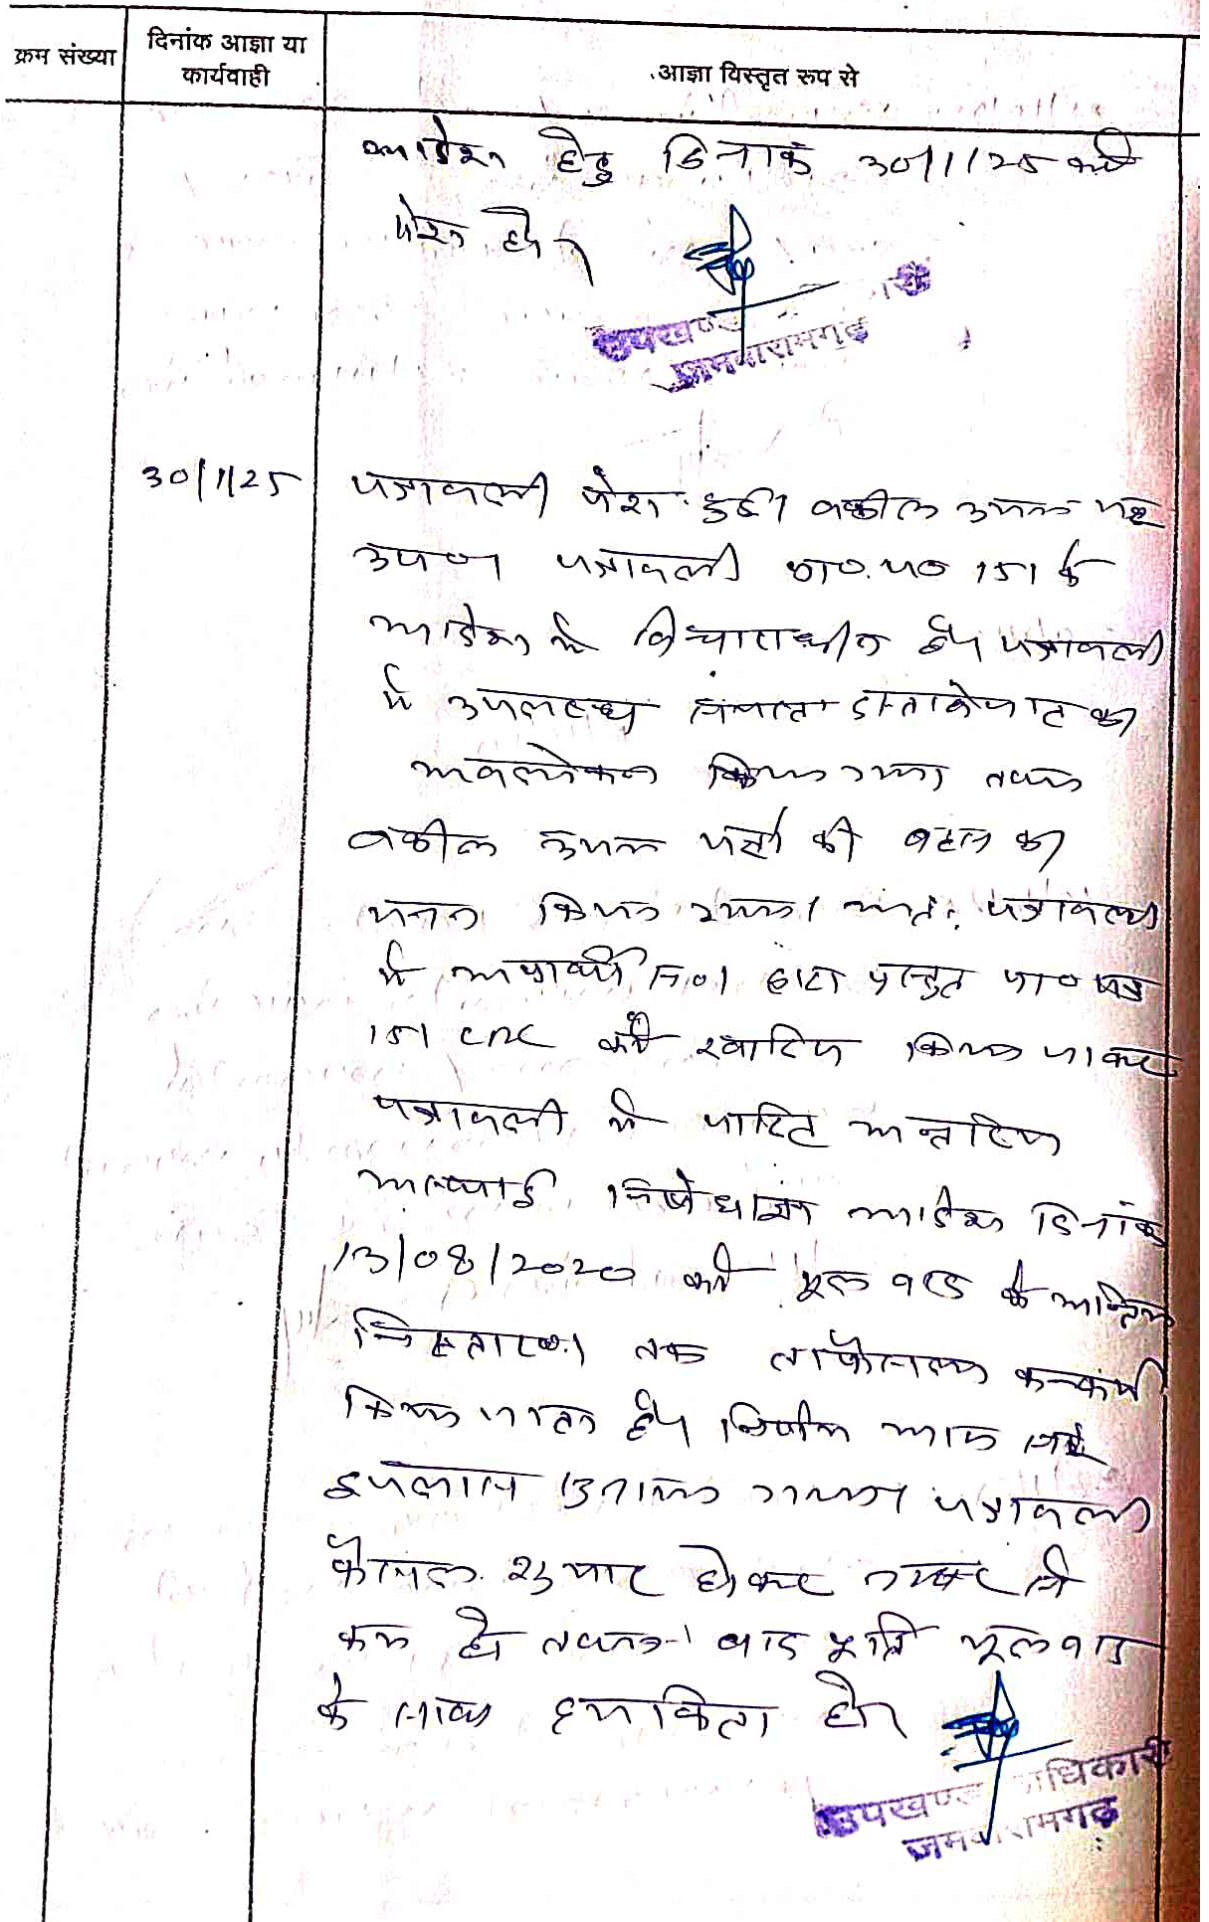 क्रम संख्या
दिनांक आज्ञा या
कार्यवाही
आज्ञा विस्तृत रूप से
आदेश हेतु दिनांक 30/1/25 को
पेश हो।
उपखण्ड
जमवारामगढ़
30/1/25
पत्रावली पेश हुई। वकील उभय पक्ष
उप०। पत्रावली प्रा०.प० 151 के
आदेश में विचाराधीन है। पत्रावली
में उपलब्ध समस्त दस्तावेजात का
अवलोकन किया गया तथा
वकील उभय पक्षों की बहस का
मनन किया गया। अतः पत्रावली
में अप्रार्थी स०1 द्वारा प्रस्तुत प्रा० पत्र
151 CPC को खारिज किया जाकर
पत्रावली में पारित अन्तरिम
अस्थाई निषेधाज्ञा आदेश दिनांक
13/08/2020 को मूल वाद के अन्तिम
निस्तारण तक ताफैसला कन्फर्म
किया जाता है। निर्णय आज सरे
इजलास सुनाया गया। पत्रावली
फैसल शुमार होकर नम्बर से
कम हो तथा बाद पूर्ति मूल वाद
के साथ हमकिता हो।
उपखण्ड अधिकारी
जमवारामगढ़